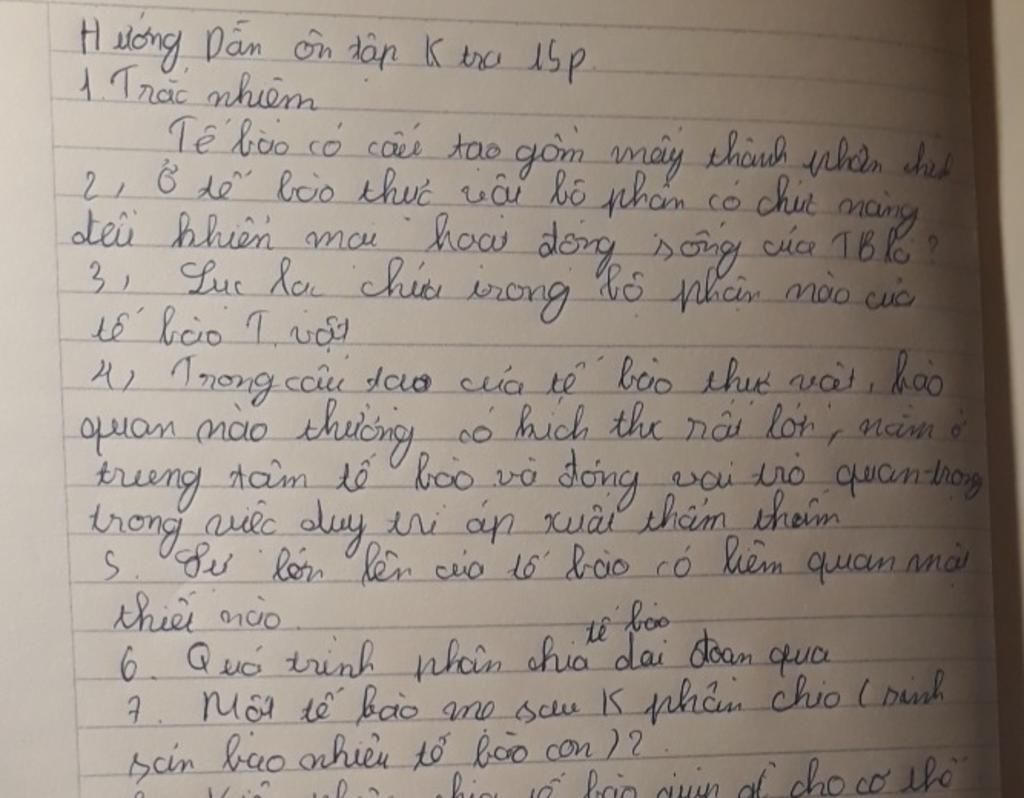 Hướng Dẫn ôn tập K tra 15p
1. Trắc nhiệm
Tế bào có cấu tạo gồm mấy thành phần
2, Ở tế bào thực vật bộ phận có chức năng
điều khiển mọi hoạt động sống của TB là?
3, Lục lạc chứa trong bộ phận nào của
tế bào T. vật
4, Trong cấu tạo của tế bào thực vật, bào
quan nào thường có kích thc rất lớn, nằm ở
trung tâm tế bào và đóng vai trò quan trọng
trong việc duy trì áp xuất thẩm thấu
5. Sự lớn lên của tế bào có liên quan mật
thiết nào
6. Quá trình phân chia tế bào đoạn qua
7. Một tế bào mo sau K phân chia (sinh
sản bao nhiêu tế bào con)?
tế bào giúp gì cho cơ thể